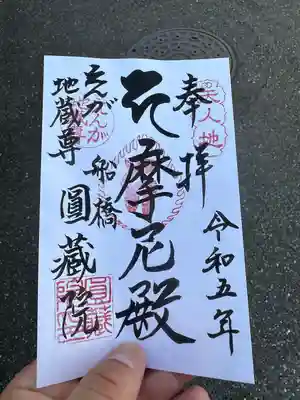 奉拝
令和五年
天人地
摩尼殿
えんが
地蔵尊
船橋
圓藏院